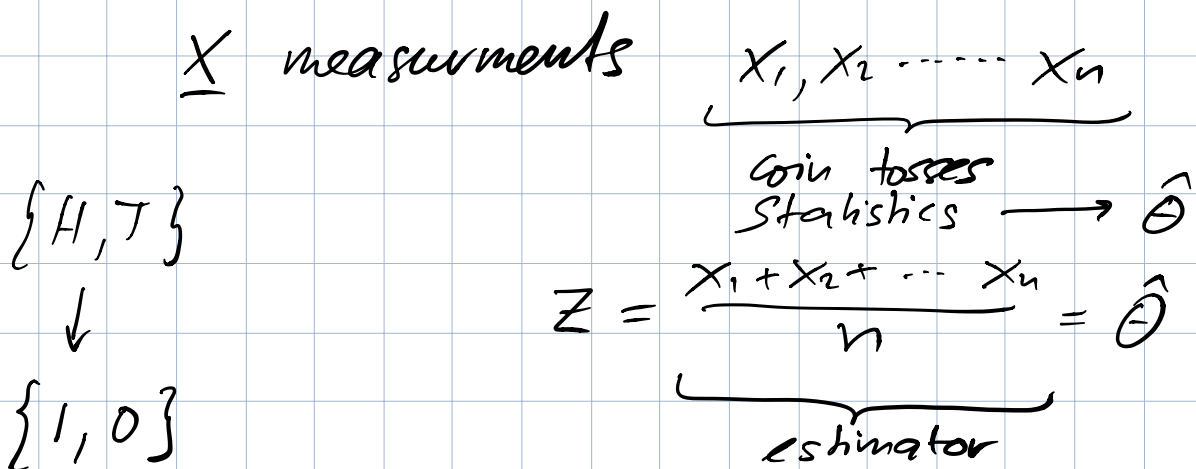 X measurments X₁, X₂ ------ Xn
coin tosses
{H, T} Statistics → θ̂
↓ Z = X₁ + X₂ + ... Xn / n = θ̂
{1, 0} estimator